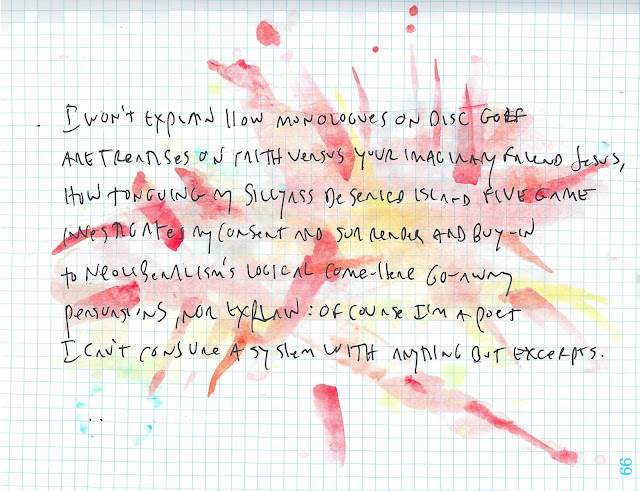 . I WON'T EXPLAIN HOW MONOLOGUES ON DISC GOLF
ARE TREATISES ON FAITH VERSUS YOUR IMAGINARY FRIEND JESUS,
HOW TONGUING MY SILLYASS DESERTED ISLAND FIVE GAME
INVESTIGATES MY CONSENT AND SURRENDER AND BUY-IN
TO NEOLIBERALISM'S LOGICAL COME-HERE GO-AWAY
PERSUASIONS, NOR EXPLAIN: OF COURSE I'M A POET
I CAN'T CONSTRUE A SYSTEM WITH ANYTHING BUT EXCERPTS.
..
99